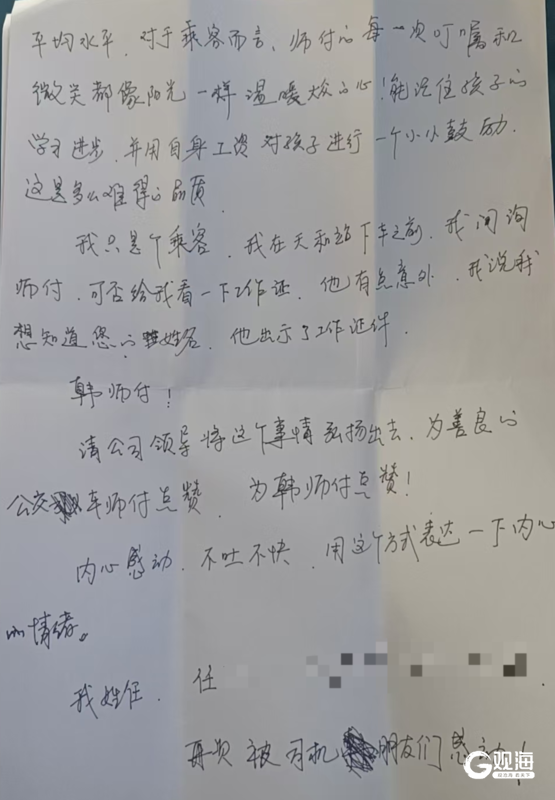 平均水平。对于乘客而言、师付的每一次叮嘱和
微笑都像阳光一样温暖大众的心！能记住孩子的
学习进步，并用自身工资对孩子进行一个小小鼓励，
这是多么难得的品质
我只是个乘客，我在天和站下车之前，我询问
师付，可否给我看一下工作证，他有点意外，我说我
想知道您的姓名，他出示了工作证件，
韩师付！
请公司领导将这个事情弘扬出去，为善良的
公交车师付点赞，为韩师付点赞！
内心感动，不吐不快，用这个方式表达一下内心
的情绪。
我姓任， 任
再次被司机朋友们感动！
观海